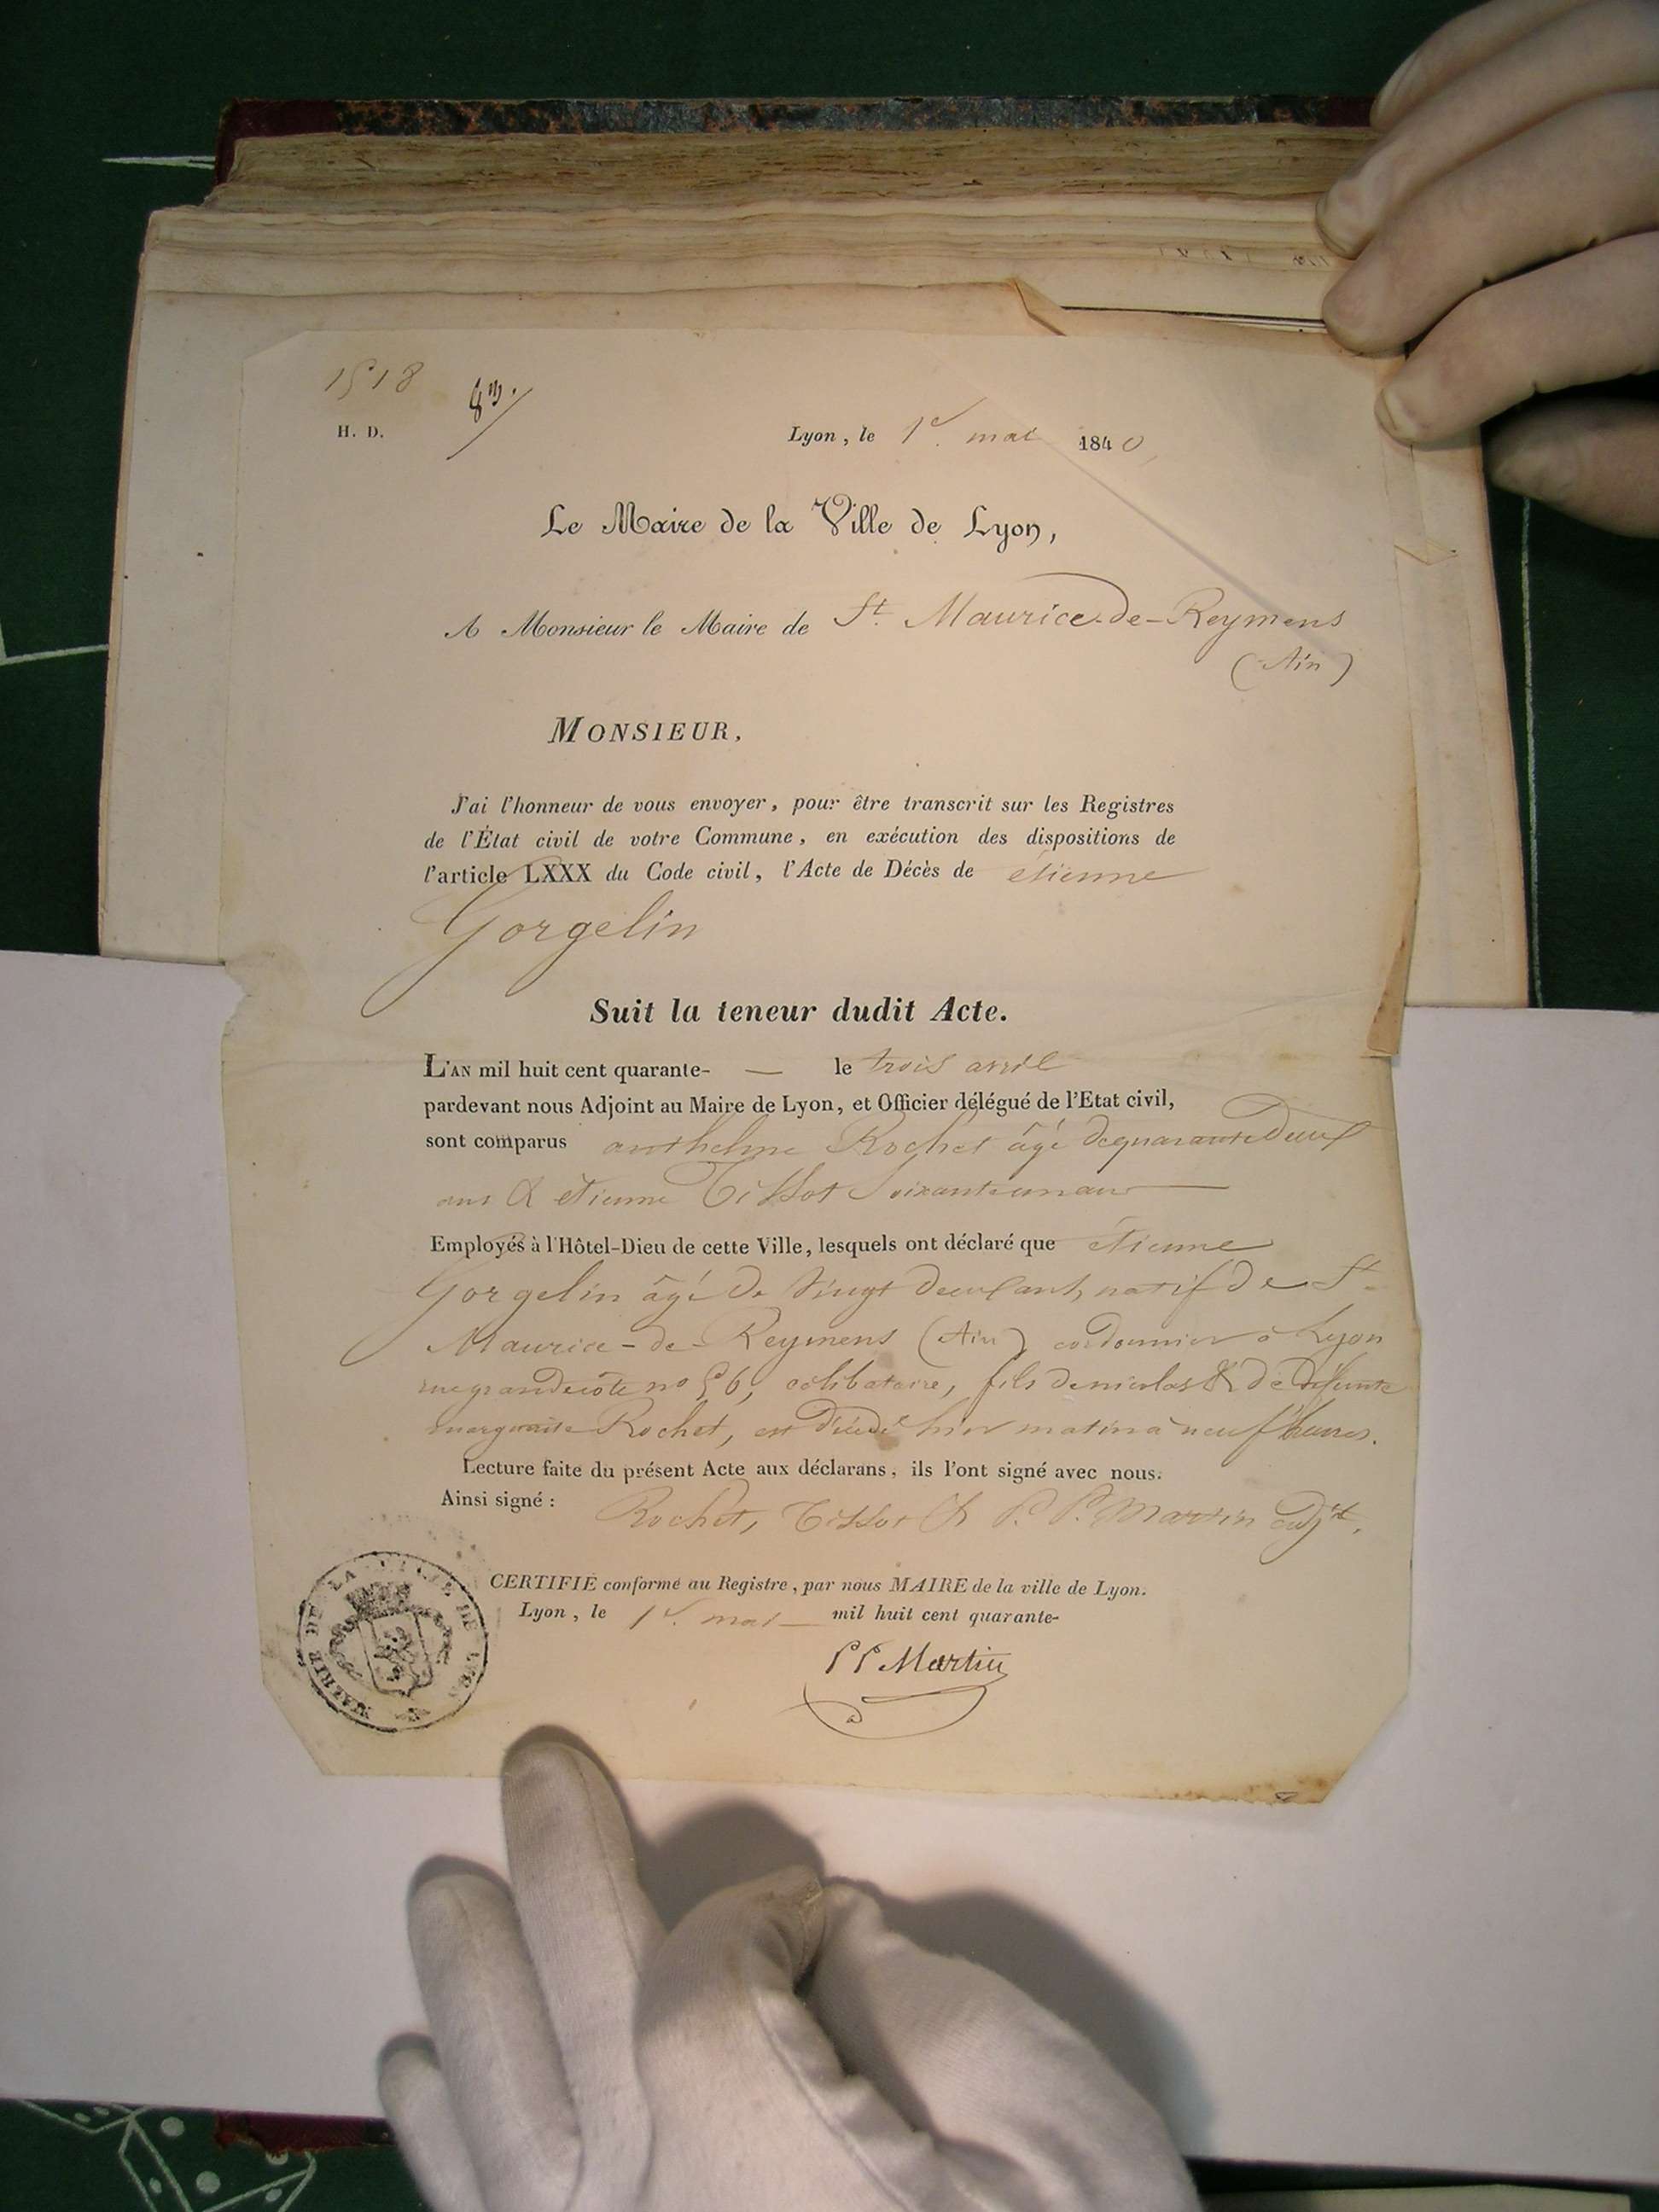 1518
8bre
H. D.
Lyon, le 1er. mai 1840,
Le Maire de la Ville de Lyon,
A Monsieur le Maire de St. Maurice-de-Reymens
(Ain)
MONSIEUR,
J'ai l'honneur de vous envoyer, pour être transcrit sur les Registres
de l'État civil de votre Commune, en exécution des dispositions de
l'article LXXX du Code civil, l'Acte de Décès de étienne
Gorgelin
Suit la teneur dudit Acte.
L'AN mil huit cent quarante- — le trois avril
pardevant nous Adjoint au Maire de Lyon, et Officier délégué de l'Etat civil,
sont comparus anthelme Rochet âgé de quarante deux
ans & étienne Tissot soixante un ans
Employés à l'Hôtel-Dieu de cette Ville, lesquels ont déclaré que étienne
Gorgelin âgé de vingt deux ans, natif de St-
Maurice-de-Reymens (Ain) cordonnier à Lyon
rue grande côte no 56, célibataire, fils de nicolas & de défunte
marguerite Rochet, est décédé hier matin à neuf heures.
Lecture faite du présent Acte aux déclarans, ils l'ont signé avec nous.
Ainsi signé : Rochet, Tissot & P. P. Martin adjt.
CERTIFIÉ conforme au Registre, par nous MAIRE de la ville de Lyon.
Lyon, le 1er. mai — mil huit cent quarante-
P P Martin
MAIRIE DE LA VILLE DE LYON